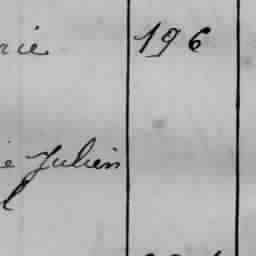 rie 196
e Julien